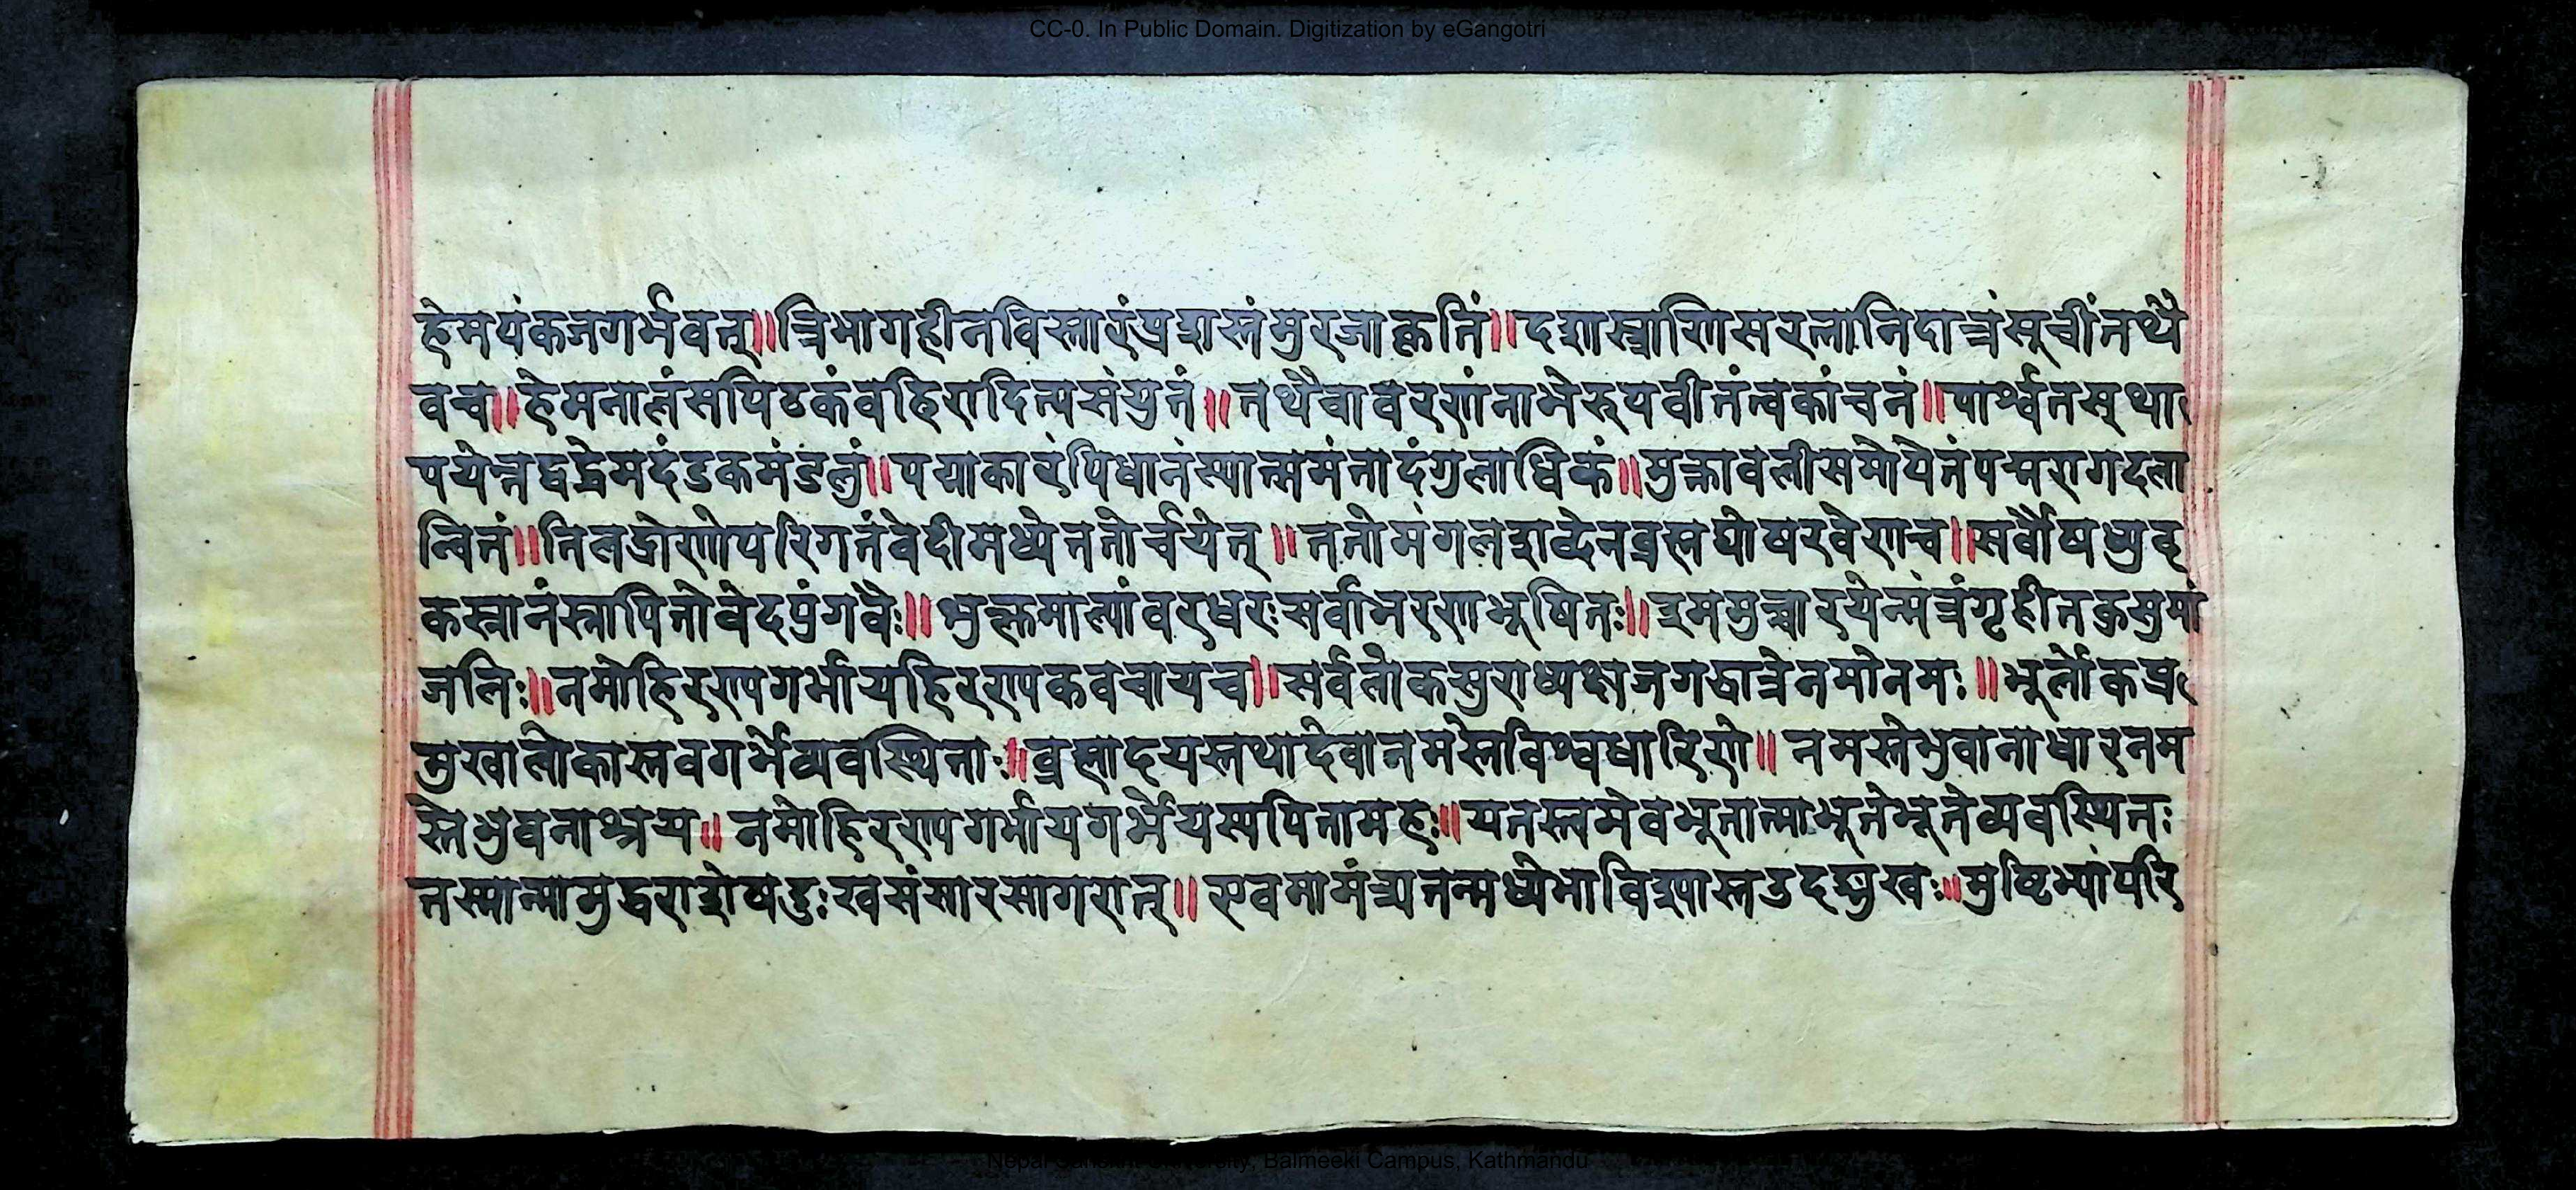 CC-0. In Public Domain. Digitization by eGangotri
हेमपंकजगर्भवत्॥त्रिभागहीनविस्तारंप्रशस्तंमुरजाकृतिं॥दशास्त्राणिसरलानिदात्रंसूचींतथै
वच॥हेमनालंसपिठकंवहिरादित्यसंयुतं॥तथैवावरणंनाभेरुपवीतंत्वकांचनं॥पार्श्वतस्था
पयेत्तद्वद्धेमदंडकमंडलुं॥पद्माकारंपिधानंस्यात्समंतादंगुलाधिकं॥मुक्तावलीसमोपेतंपद्मरागदला
न्वितं॥तिलद्रोणोपरिगतंवेदीमध्येततोर्चयेत्॥ततोमंगलशब्देनब्रह्मघोषरवेणच॥सर्वौषध्युद
कस्नानंस्नापितोवेदपुंगवैः॥शुक्लमाल्यांवरधरःसर्वाभरणभूषितः॥इममुच्चारयेन्मंत्रंगृहीतकुसुमां
जलिः॥नमोहिरण्यगर्भायहिरण्यकवचायच॥सर्वलोकसुराध्यक्षजगद्धात्रेनमोनमः॥भूर्लोकप्र
मुखालोकास्तवगर्भेव्यवस्थिताः॥ब्रह्मादयस्तथादेवानमस्तेविश्वधारिणे॥नमस्तेभुवानाधारनम
स्तेभुवनाश्रय॥नमोहिरण्यगर्भायगर्भेयस्यपितामहः॥यतस्त्वमेवभूतात्माभूतेभूतेव्यवस्थितः
तस्मान्मामुद्धराशेषदुःखसंसारसागरात्॥एवमामंत्र्यतन्मध्येमाविश्यास्तउदङ्मुखः॥मुष्टिभ्यांपरि
Nepal Sanskrit University, Balmeeki Campus, Kathmandu